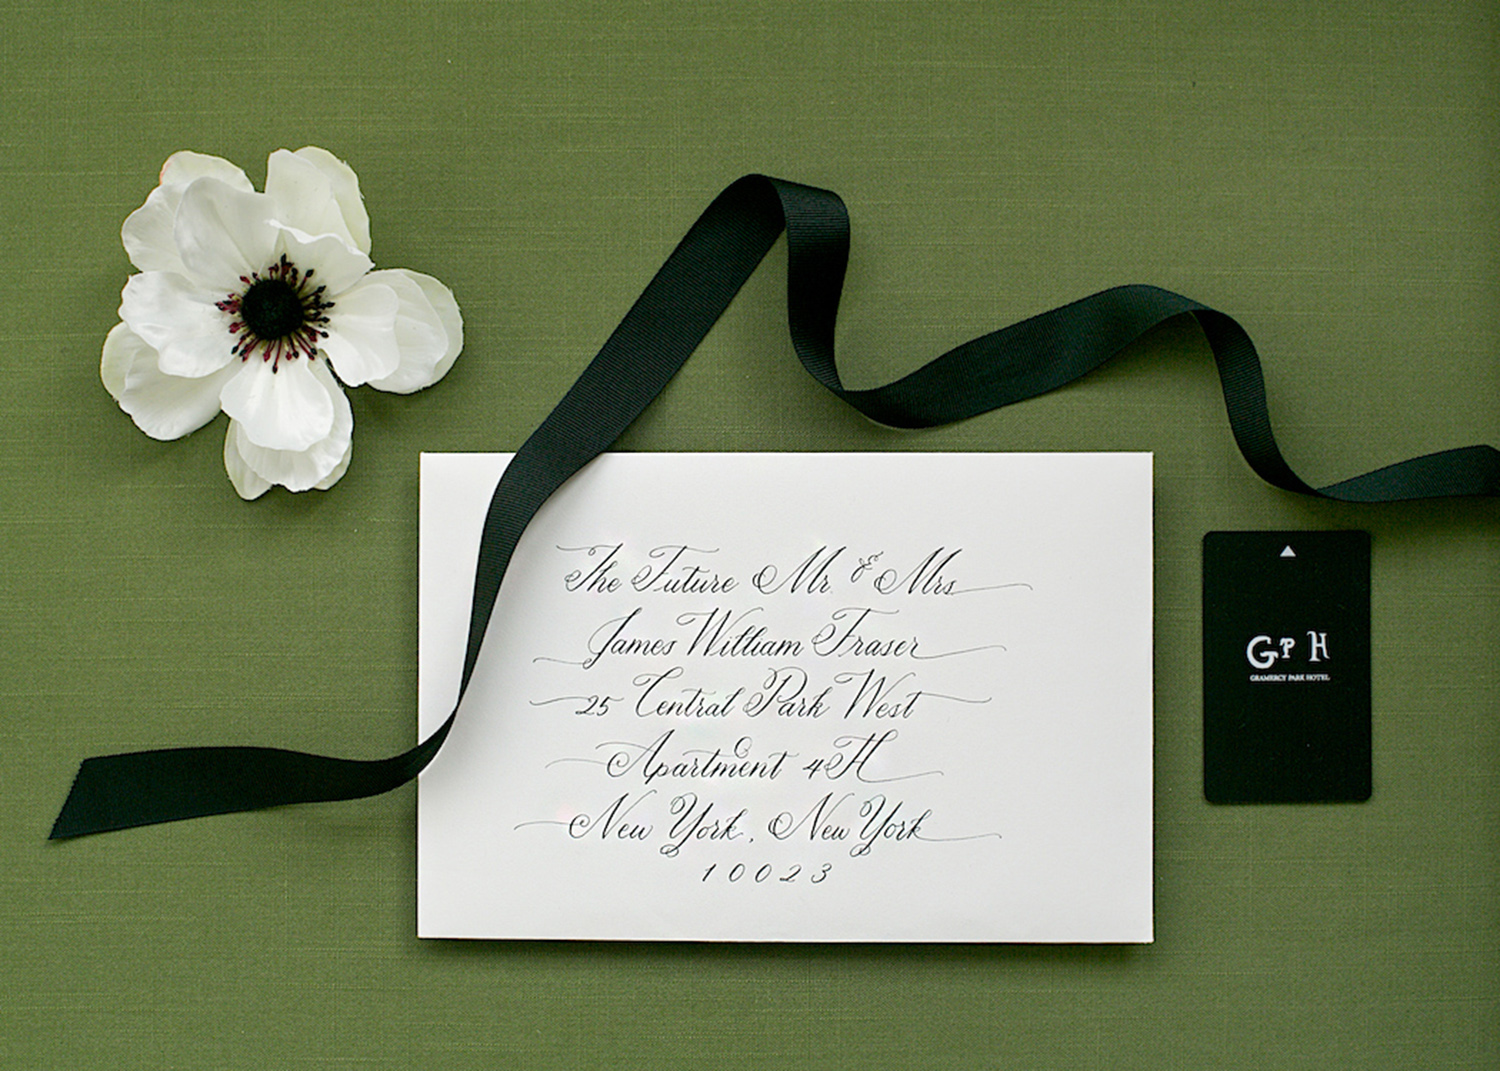 The Future Mr. & Mrs
James William Fraser
25 Central Park West
Apartment 4H
New York, New York
10023
GPH
GRAMERCY PARK HOTEL